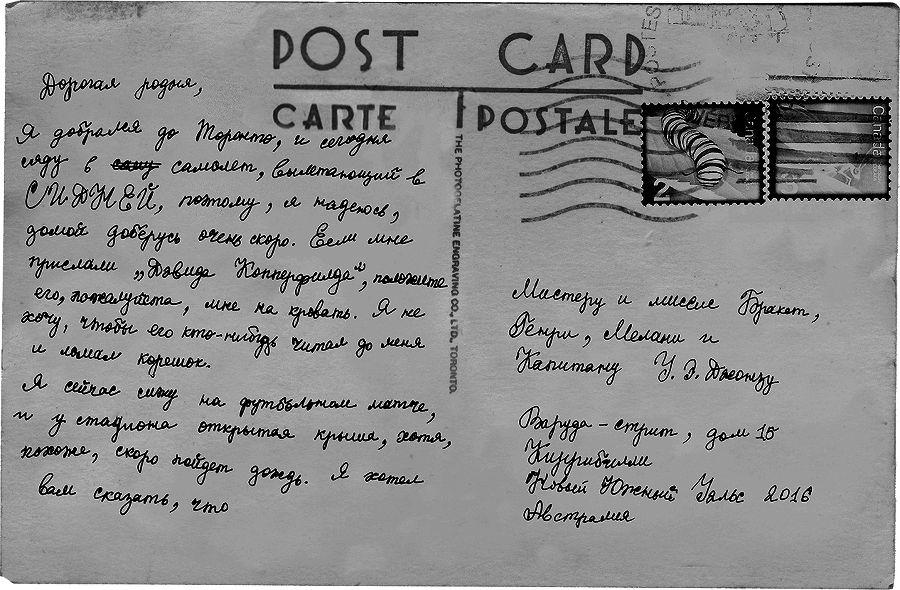 POST CARD
CARTE POSTALE
THE PHOTOGELATINE ENGRAVING CO., LTD., TORONTO.
Дорогая родня,
Я добрался до Торонто, и сегодня
сяду в самолет, вылетающий в
СИДНЕЙ, поэтому, я надеюсь,
домой доберусь очень скоро. Если мне
прислали „Дэвида Копперфилда", положите
его, пожалуйста, мне на кровать. Я не
хочу, чтобы его кто-нибудь читал до меня
и ломал корешок.
Я сейчас сижу на футбольном матче,
и у стадиона открытая крыша, хотя,
похоже, скоро пойдет дождь. Я хотел
вам сказать, что
POSTES
Canada
2
Мистеру и миссис Бракет,
Генри, Мелани и
Капитану У. Э. Джонзу
Варуда-стрит, дом 15
Кирибилли
Новый Южный Уэльс 2016
Австралия